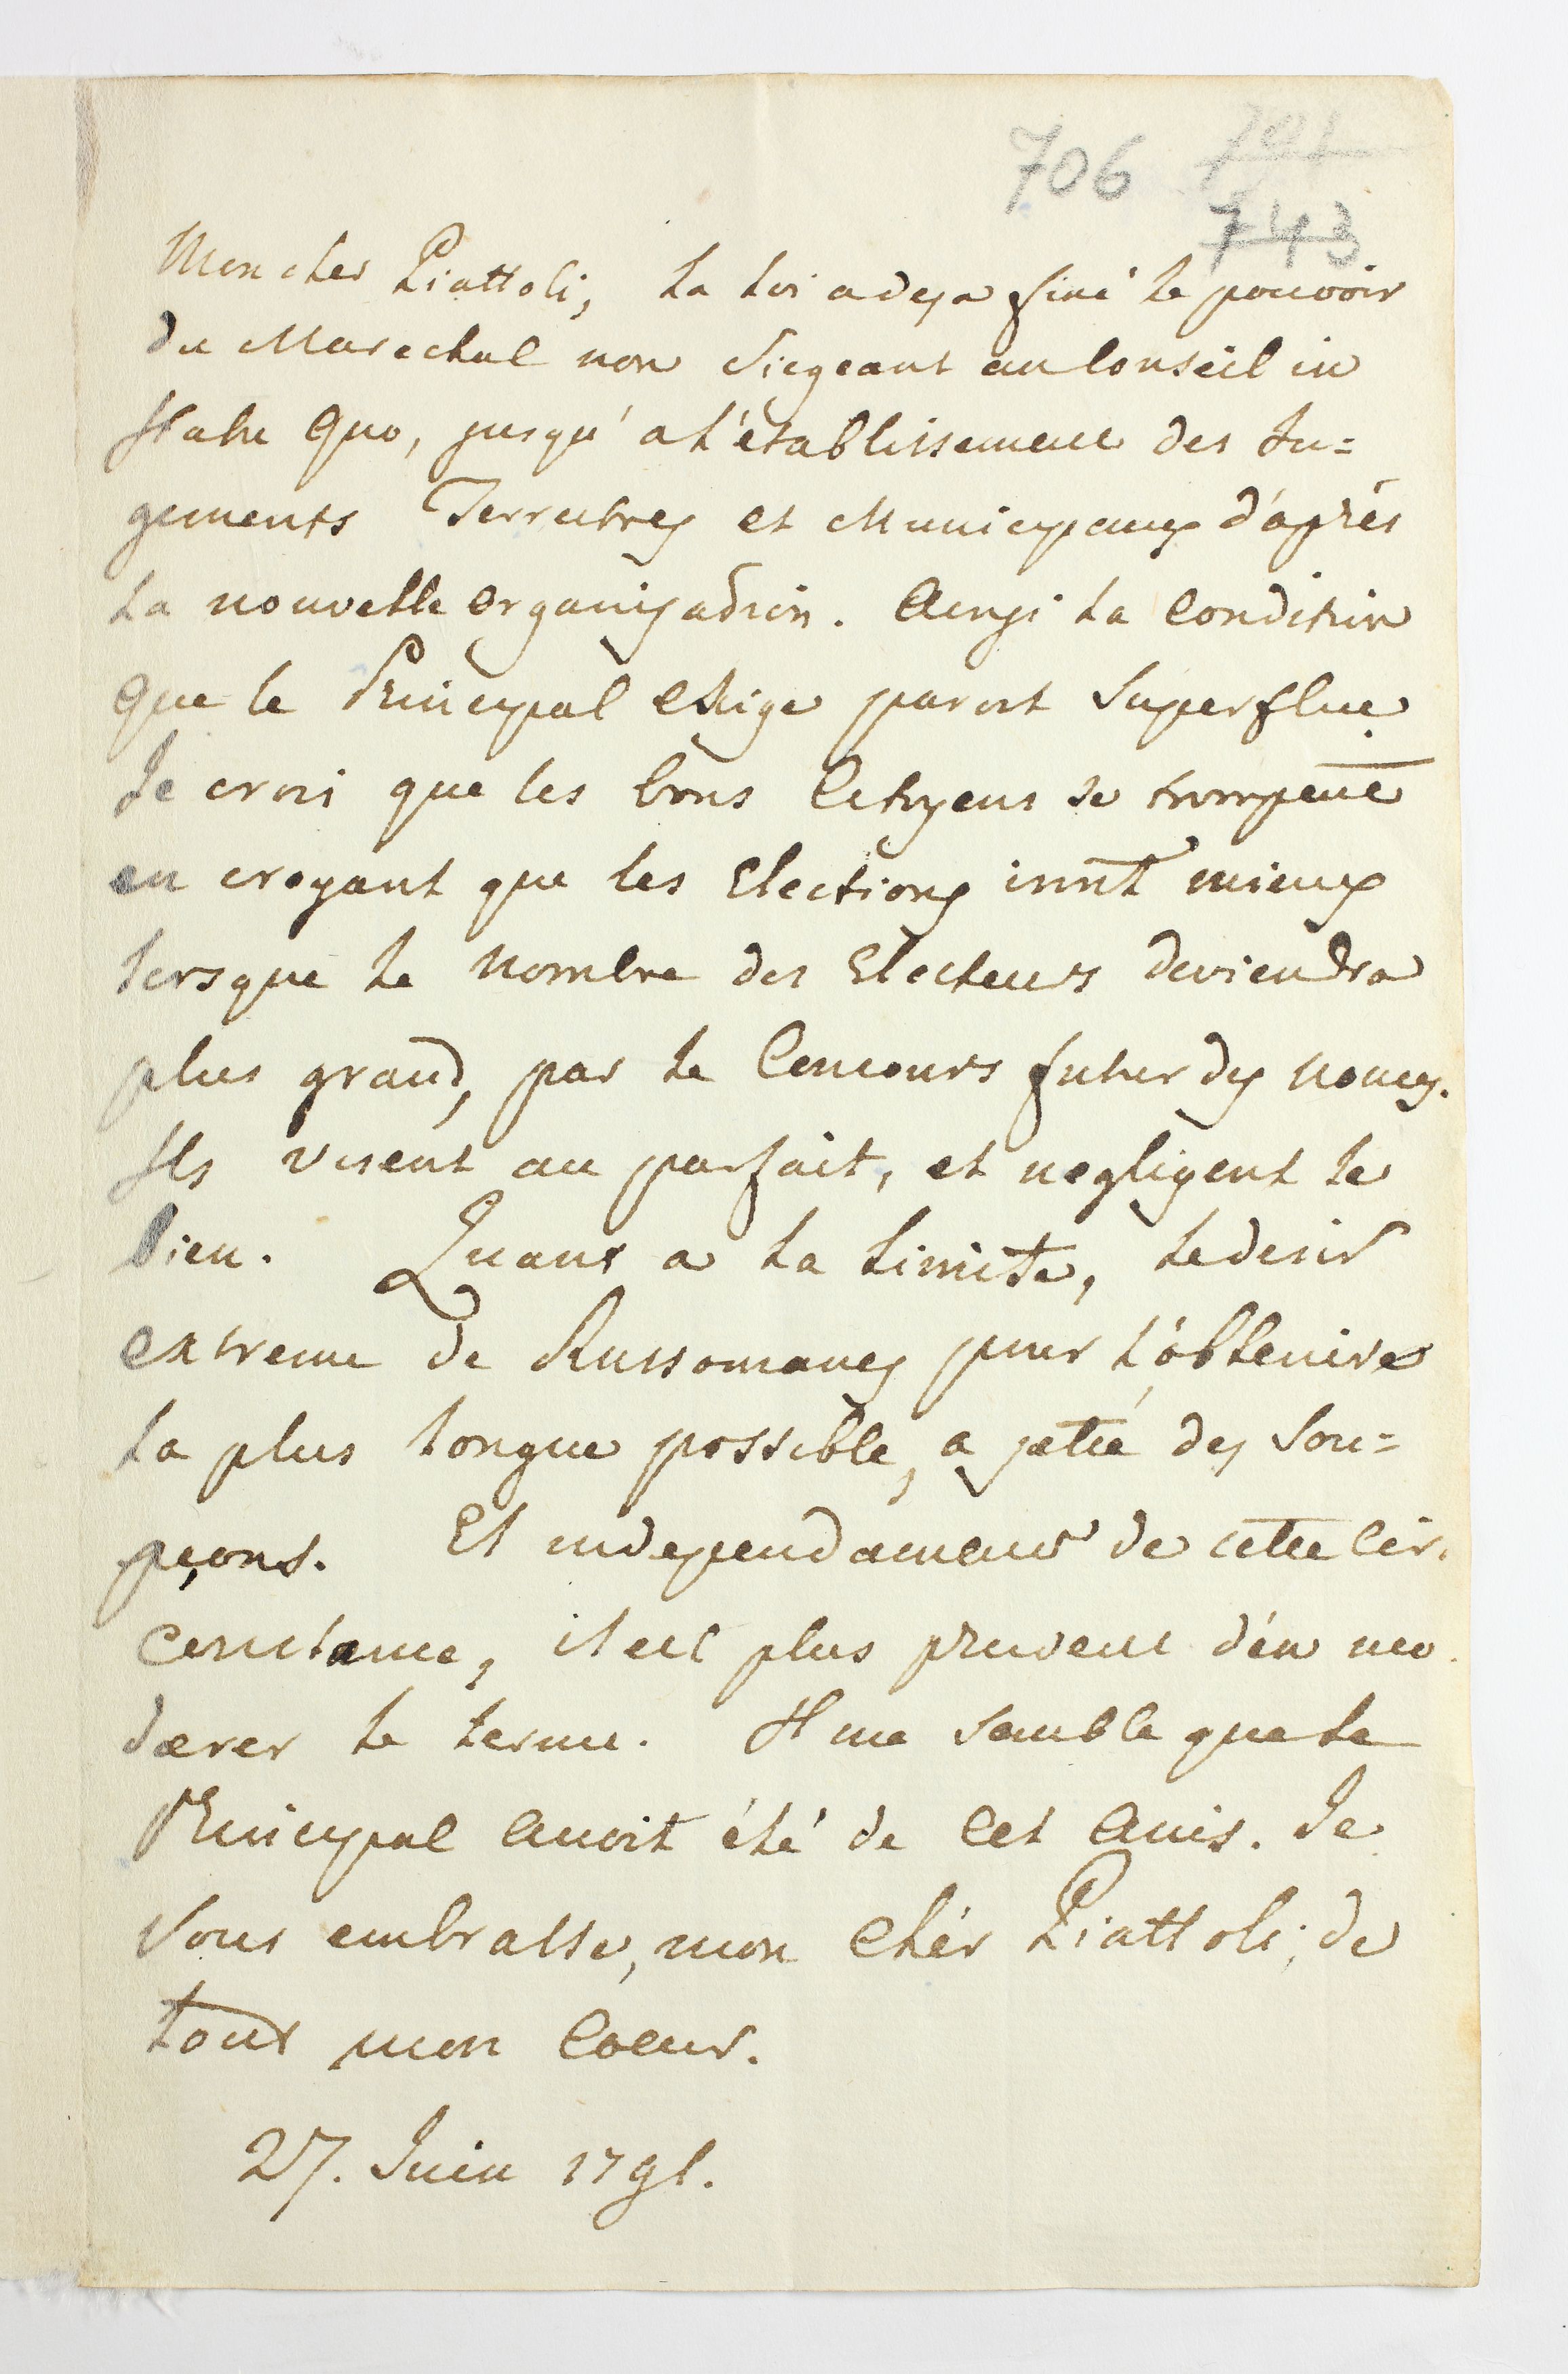 706 791
743
Mon cher Piattoli, la loi a deja fixé le pouvoir
du Marechal non Siegeant au Conseil in
Statu Quo, jusqu'a l'etablissement des Ju=
gements Terrestres et Municipaux d'aprés
la nouvelle organisation. Ainsi la Condition
que le Principal exige paroit Superflue.
Je croi que les bons Citoyens se trompent
en croyant que les Elections iront mieux
lorsque le nombre des Electeurs deviendra
plus grand, par le Concours futur des nouv.
Ils visent au parfait, et negligent le
bien. Quant a la Limite, le desir
extreme de Russomanes pour l'obtenire
la plus longue possible, a jetté des Sou=
pçons. Et independament de cette Cir.
constance, il est plus prudent d'en mo
derer le terme. Il me semble que le
Principal avoit été de Cet Avis. Je
Vous embrasse, mon Chér Piattoli, de
tout mon Coeur.
27. Juin 1791.